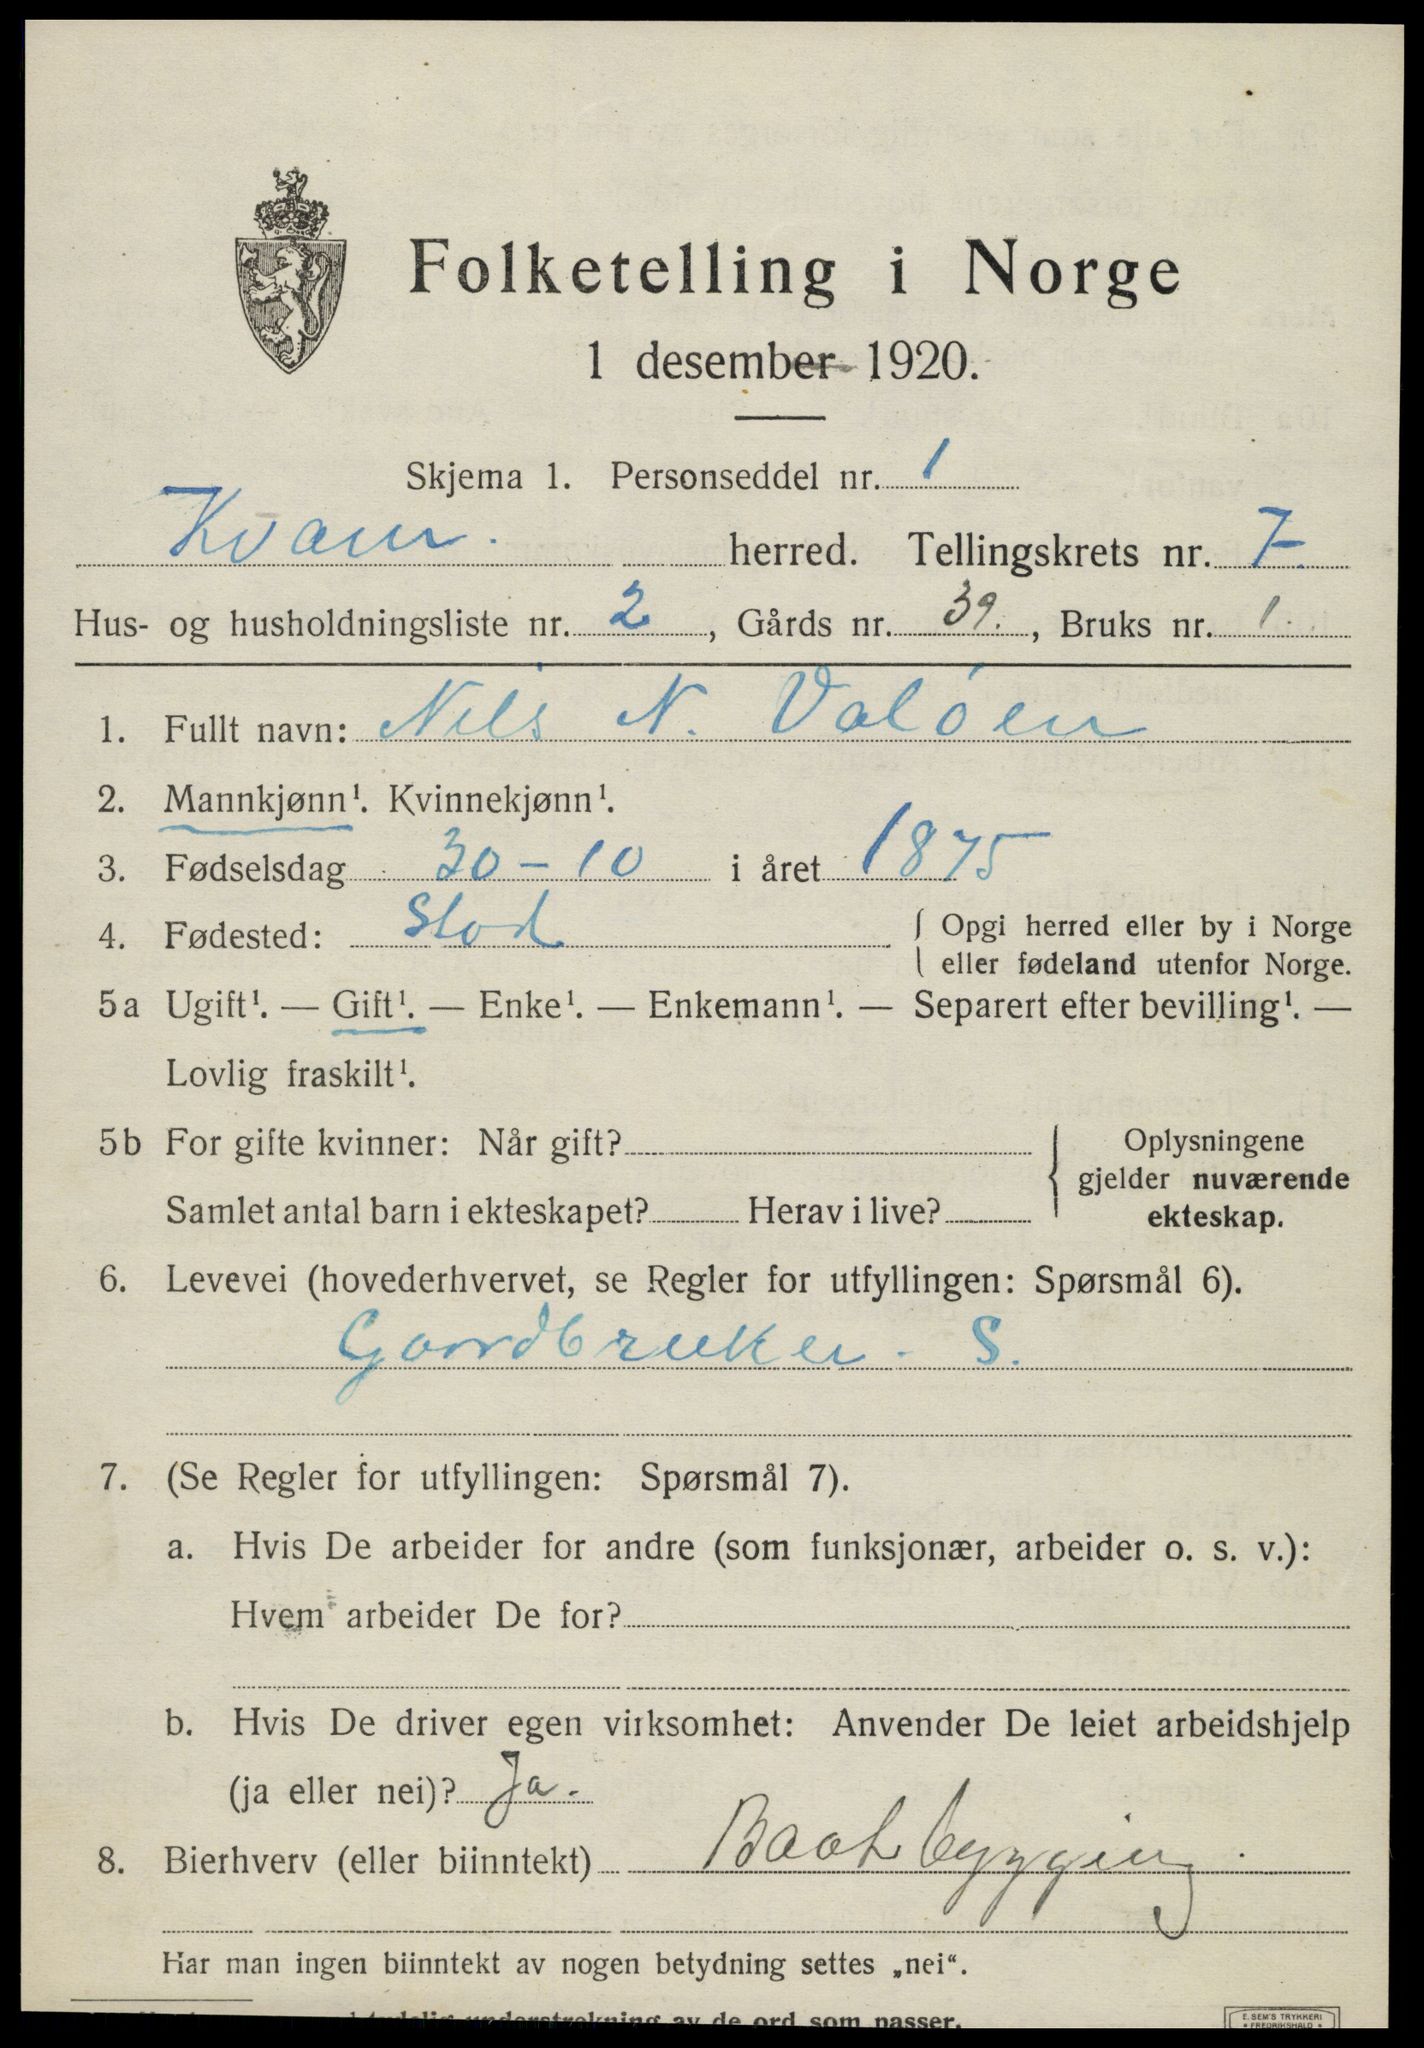 Folketelling i Norge
1 desember 1920.
Skjema 1. Personseddel nr. 1
Kvam. herred. Tellingskrets nr. 7.
Hus- og husholdningsliste nr. 2, Gårds nr. 39., Bruks nr. 1.
1. Fullt navn: Nils N. Valöen
2. Mannkjønn¹. Kvinnekjønn¹.
3. Fødselsdag 30-10 i året 1875
4. Fødested: Stod { Opgi herred eller by i Norge
eller fødeland utenfor Norge.
5a Ugift¹. — Gift¹. — Enke¹. — Enkemann¹. — Separert efter bevilling¹. —
Lovlig fraskilt¹.
5b For gifte kvinner: Når gift?
Samlet antal barn i ekteskapet? Herav i live?
{ Oplysningene
gjelder nuværende
ekteskap.
6. Levevei (hovederhvervet, se Regler for utfyllingen: Spørsmål 6).
Gaardbruker. S.
7. (Se Regler for utfyllingen: Spørsmål 7).
a. Hvis De arbeider for andre (som funksjonær, arbeider o. s. v.):
Hvem arbeider De for?
b. Hvis De driver egen virksomhet: Anvender De leiet arbeidshjelp
(ja eller nei)? Ja.
8. Bierhverv (eller biinntekt) Baatbygging.
Har man ingen biinntekt av nogen betydning settes „nei“.
understrekning av de ord som passer.
E. SEM'S TRYKKERI
• FREDRIKSHALD •